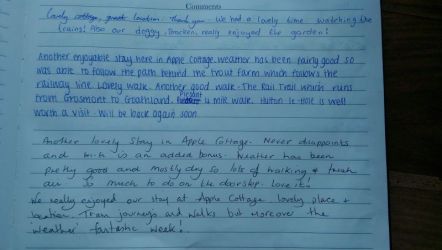 Comments
Lovely cottage, great location. Thank you. We had a lovely time watching the
trains! Also our doggy, really enjoyed the garden!
Another enjoyable stay here in Apple Cottage. Weather has been fairly good so
was able to follow the path behind the trout farm which follows the
railway line. Lovely walk. Another good walk - The Rail Trail which runs
from Grosmont to Goathland. Plesant 4 mile walk. Hutton le-Hole is well
worth a visit. Will be back again soon
Another lovely stay in Apple Cottage. Never disappoints
and is an added bonus. Weather has been
pretty good and mostly dry so lots of walking & fresh
air. So much to do on the doorstep. Love it.
We really enjoyed our stay at Apple Cottage lovely place &
location. Train journeys and walks but moreover the
weather fantastic week!